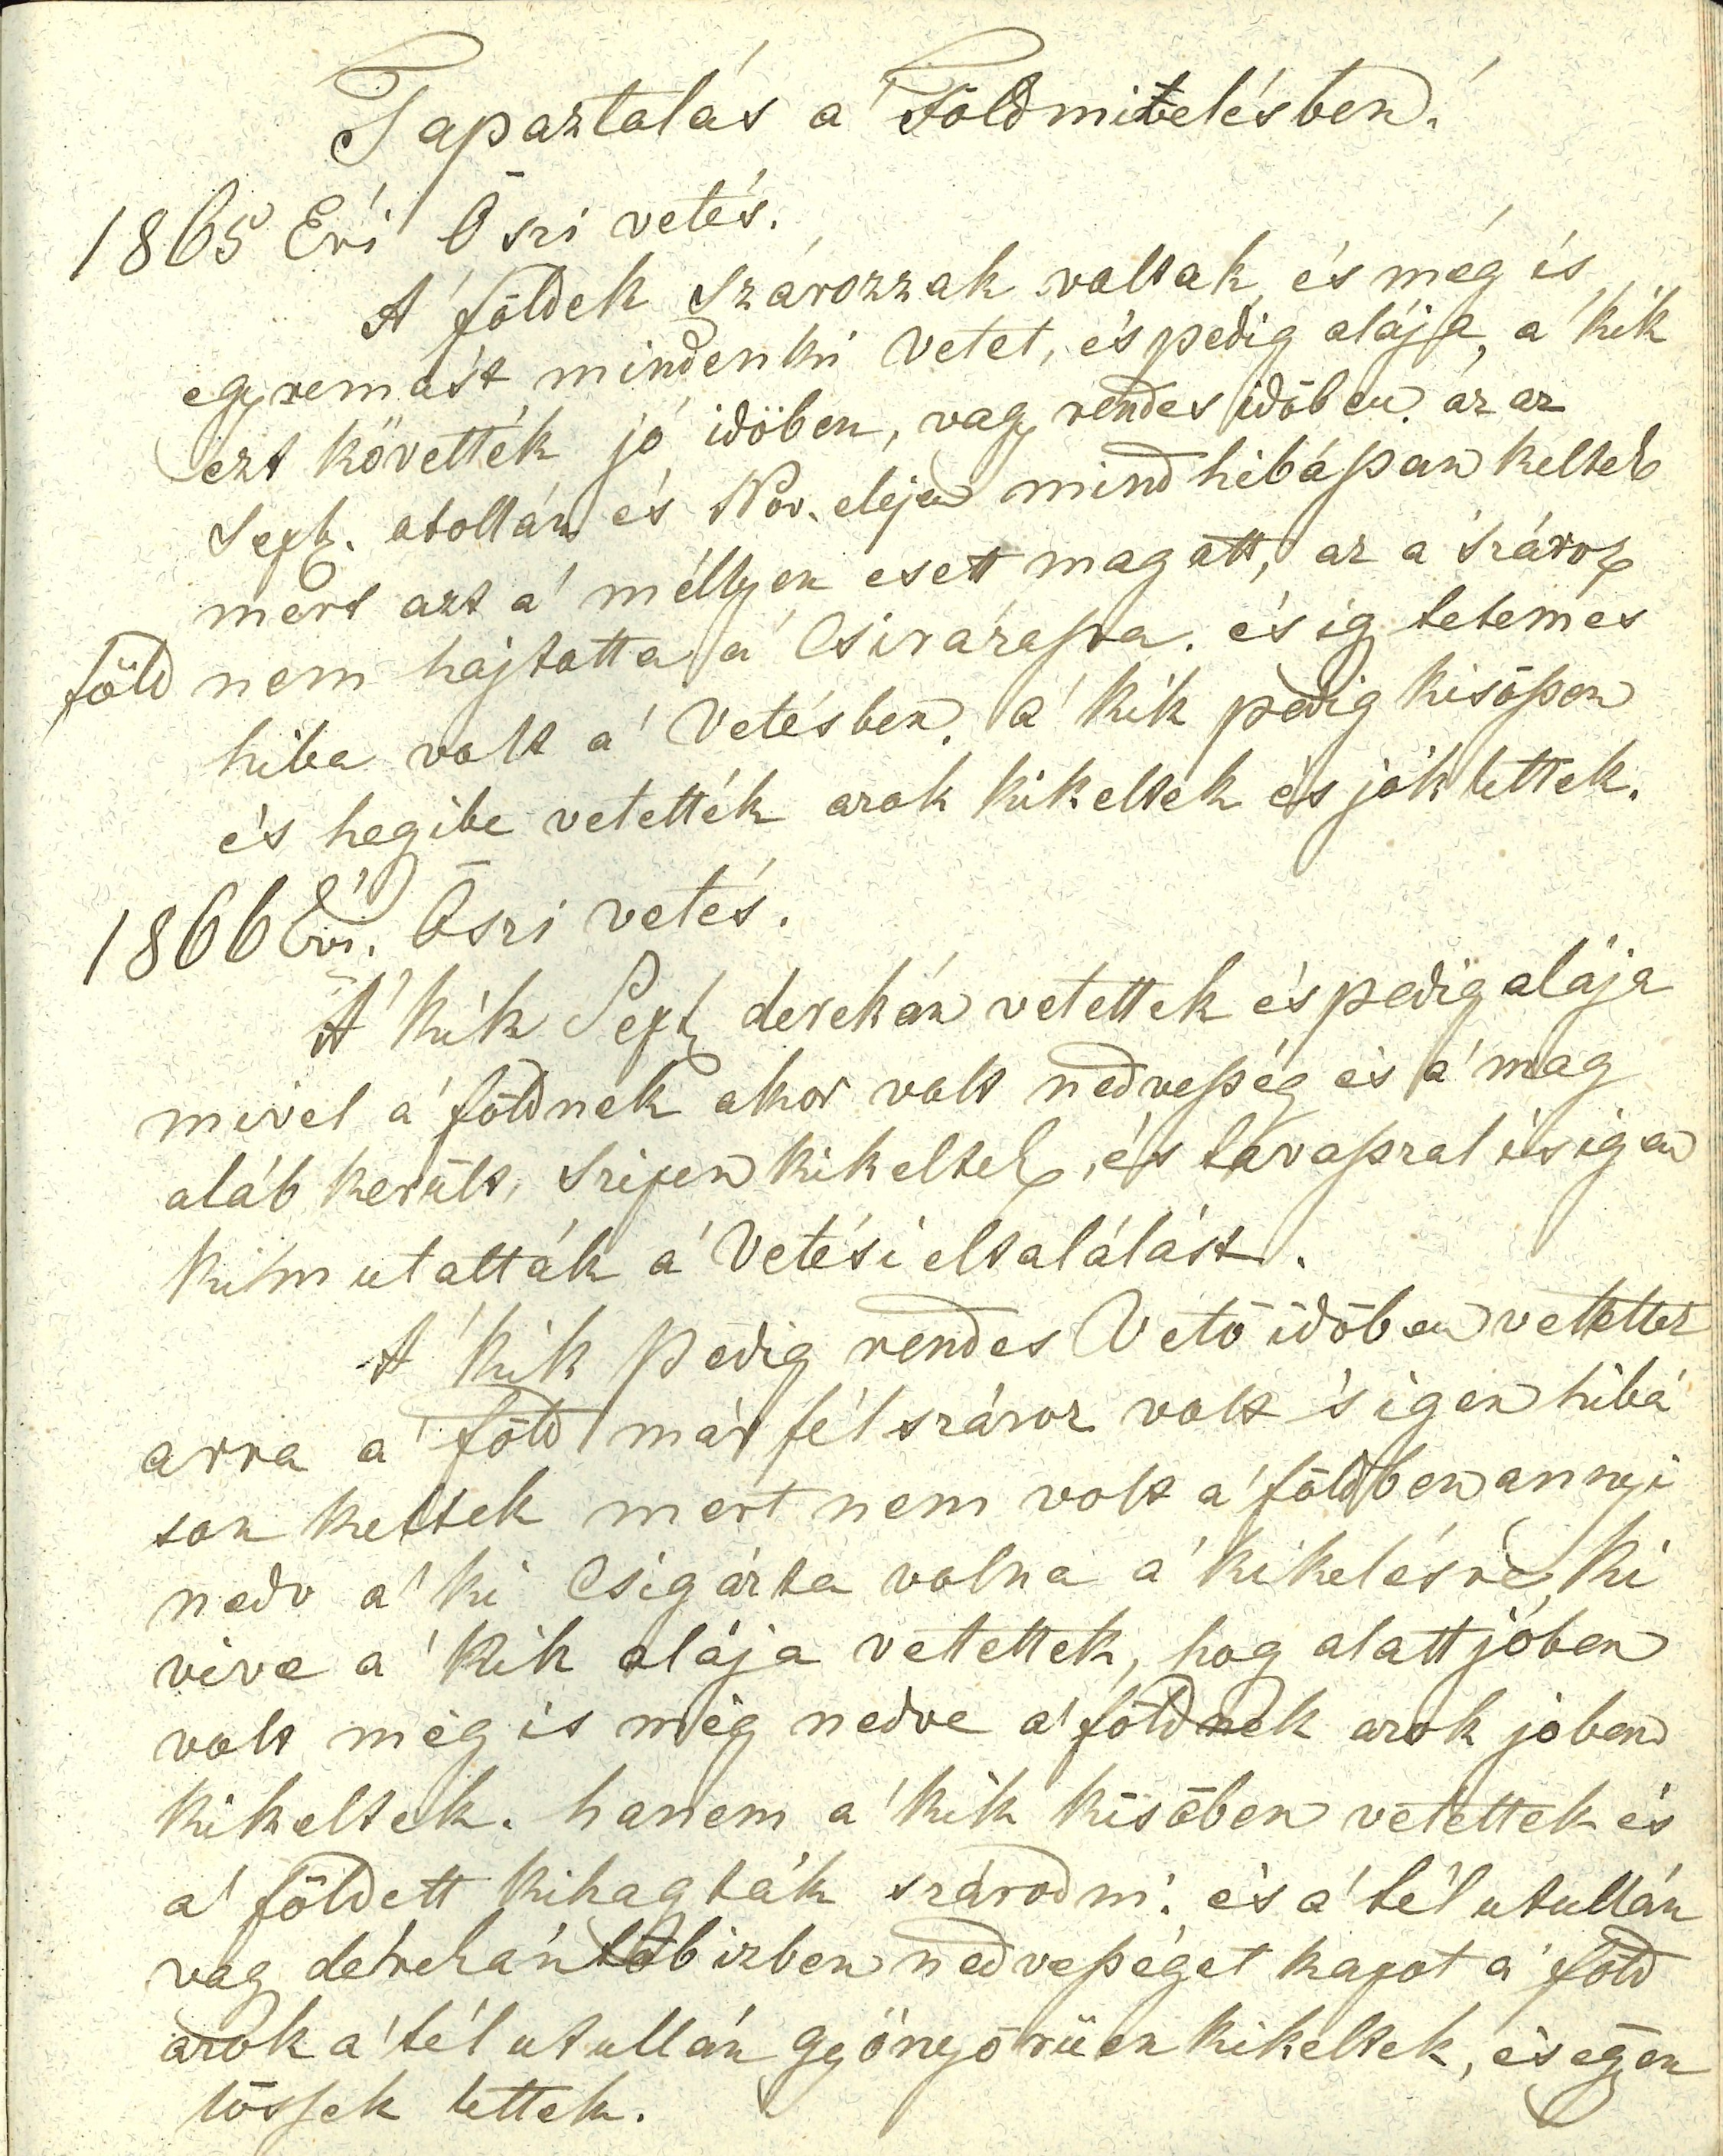 Tapaztalás a' Földmitelésben!
1865 Évi Őszi vetés.
A' földek szározzak valtak és még is
egyremást mindenki vetet, és pedig alája, a' kik
ezt követték jó idöben, vagy rendes idöben. áz az
Sept. utollán és Nov. elején mind hibáſsan keltek
mert azt a' méllyen esett magott, az a' szároz
föld nem hajtotta a' Csirázaſra. és ig tetemes
hiba valt a' Vetésben. a' kik pedig kisöſsen
és hegibe vetették azok kikeltek és jók lettek.
1866 Évi. Őszi vetés.
A' kik Sept derekán vetettek és pedig alája
mivel a' földnek akor valt nedveſség és a' mag
aláb került, szipen kikeltek, és tavaſzal is igen
kimutatták a' Vetési eltalálást.
A' kik pedig rendes Vetö idöben vetettek
arra a' föld már fél szároz valt 's igen hibá
san keltek mert nem valt a' földben annyi
nedv a' ki Csigázta valna a' kikelésre, ki
vive a' kik alája vetettek, hog alatt jóben
valt még is még nedve a' földnek azok jóben
kikeltek. hanem a' kik kisöben vetettek és
a' földett kihagták szárodni. és a' tél utullán
vag derekán több izben nedveſséget kapot a' föld
azok a' tél utullán gyönyörüen kikeltek, és egen
lössek lettek.